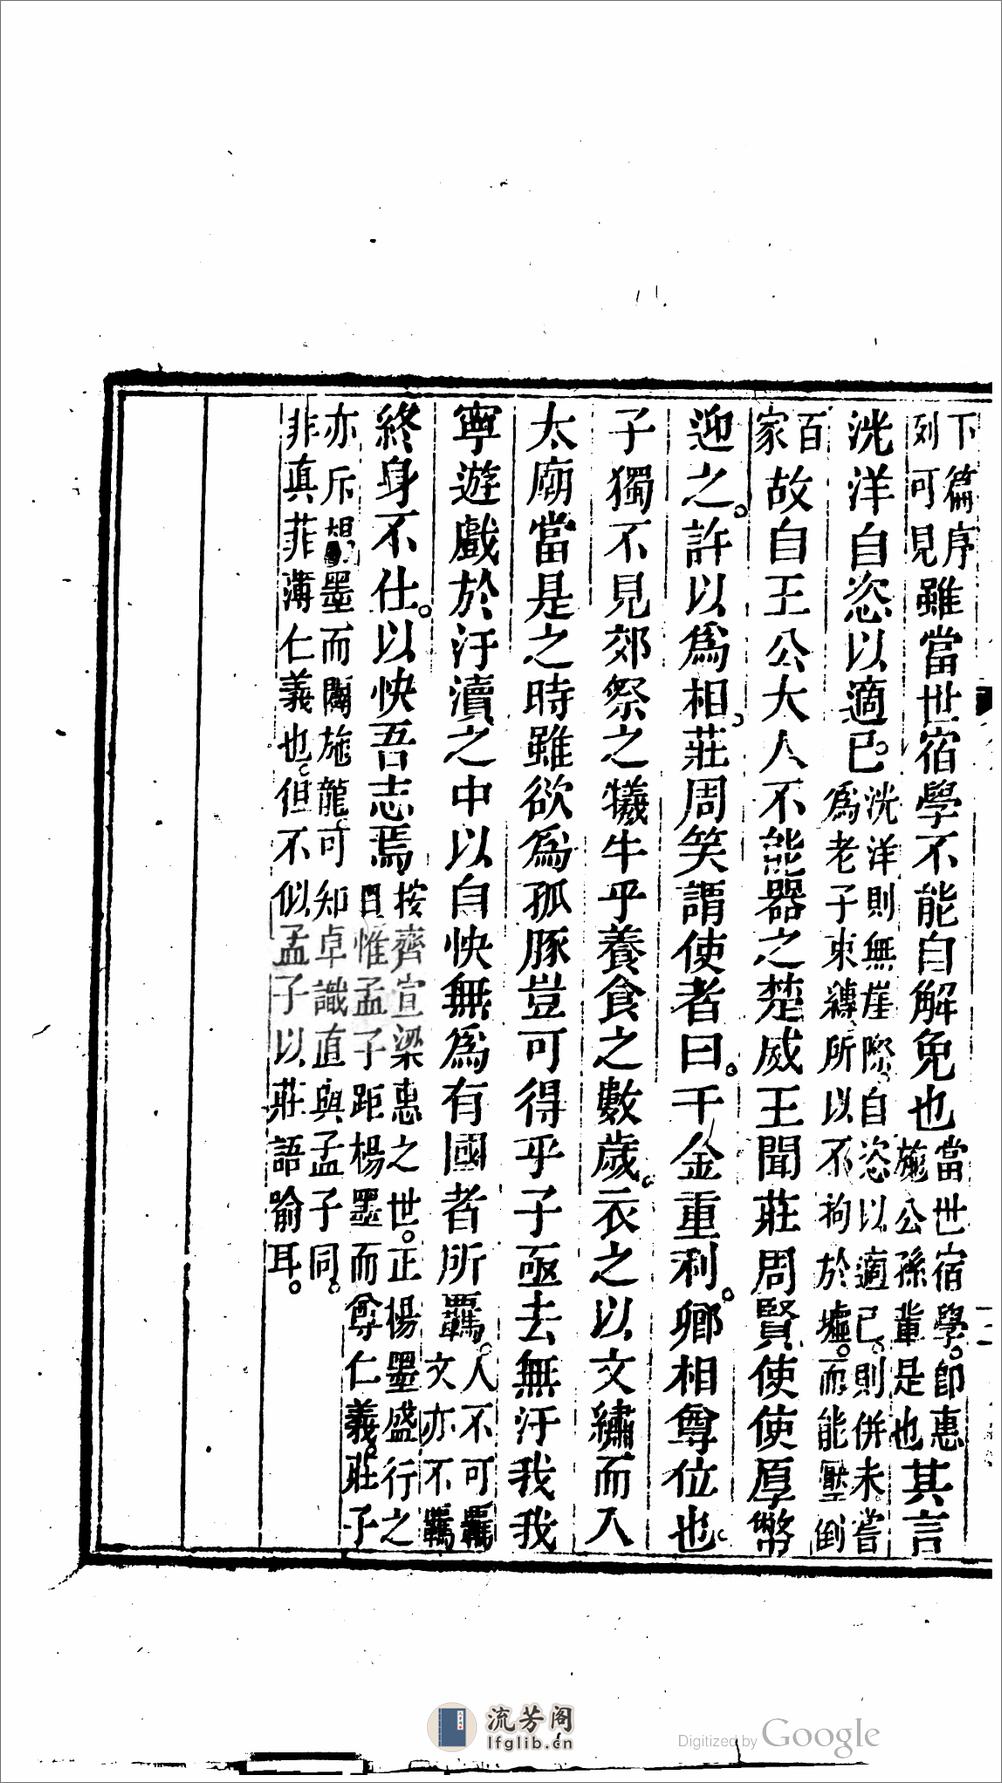 下篇序
列可見
雖當世宿學不能自解免也
當世宿學。即惠
施公孫輩是也
其言
洸洋自恣以適已。
洸洋則無崖際。自恣以適已。則併未嘗
爲老子束縛。所以不拘於墟。而能壓倒
百
家
故自王公大人不能器之楚威王聞莊周賢使使厚幣
迎之。許以爲相。莊周笑謂使者曰。千金重利。卿相尊位也。
子獨不見郊祭之犧牛乎養食之數歲。衣之以文繡而入
太廟當是之時雖欲爲孤豚豈可得乎子亟去無汙我我
寧遊戲於汙瀆之中以自快無爲有國者所羈。
人不可羈
文亦不羈
終身不仕。以快吾志焉
按齊宣梁惠之世。正楊墨盛行之
日惟孟子距楊墨而尊仁義。莊子
亦斥楊墨而闢施龍。可知卓識直與孟子同。
非真菲薄仁義也。但不似孟子以莊語喻耳。
流芳阁
lfglib.cn
Digitized by Google